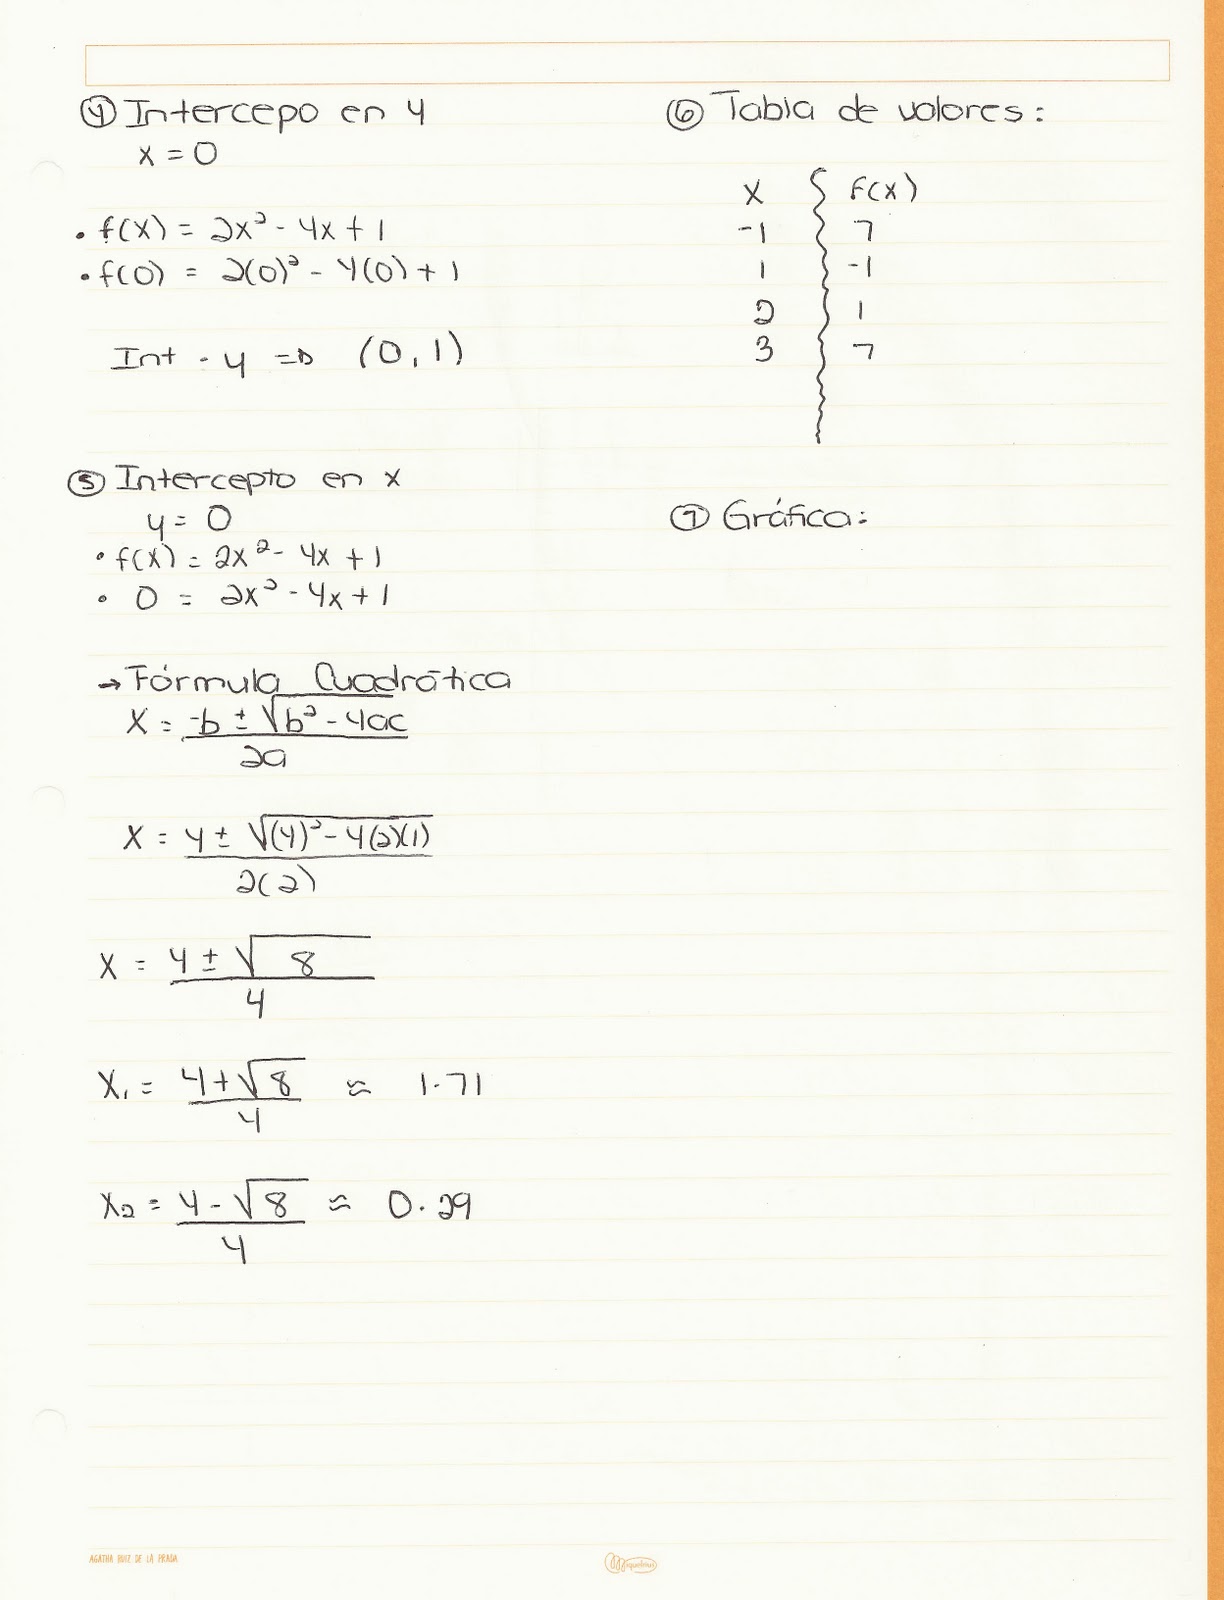 ④ Intercepo en y
x = 0
• f(x) = 2x² - 4x + 1
• f(0) = 2(0)² - 4(0) + 1
Int - y ⇒ (0, 1)
⑤ Intercepto en x
y = 0
• f(x) = 2x² - 4x + 1
• 0 = 2x² - 4x + 1
→ Fórmula Cuadrática
X = -b ± √b² - 4ac
2a
X = 4 ± √(4)² - 4(2)(1)
2(2)
X = 4 ± √8
4
X₁ = 4 + √8 ≈ 1.71
4
X₂ = 4 - √8 ≈ 0.29
4
⑥ Tabla de valores:
X f(x)
-1 7
1 -1
2 1
3 7
⑦ Gráfica:
AGATHA RUIZ DE LA PRADA